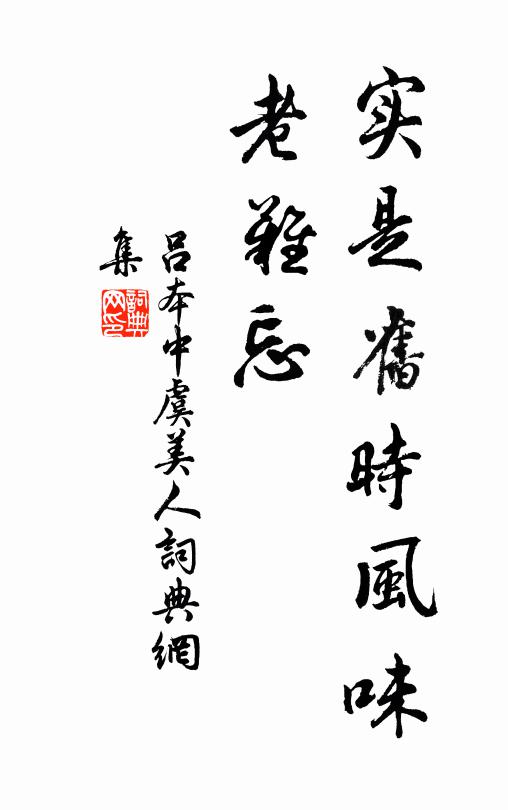 实是舊時風味
老難忘
吕本中虞美人詞典網
集
詞典
网印